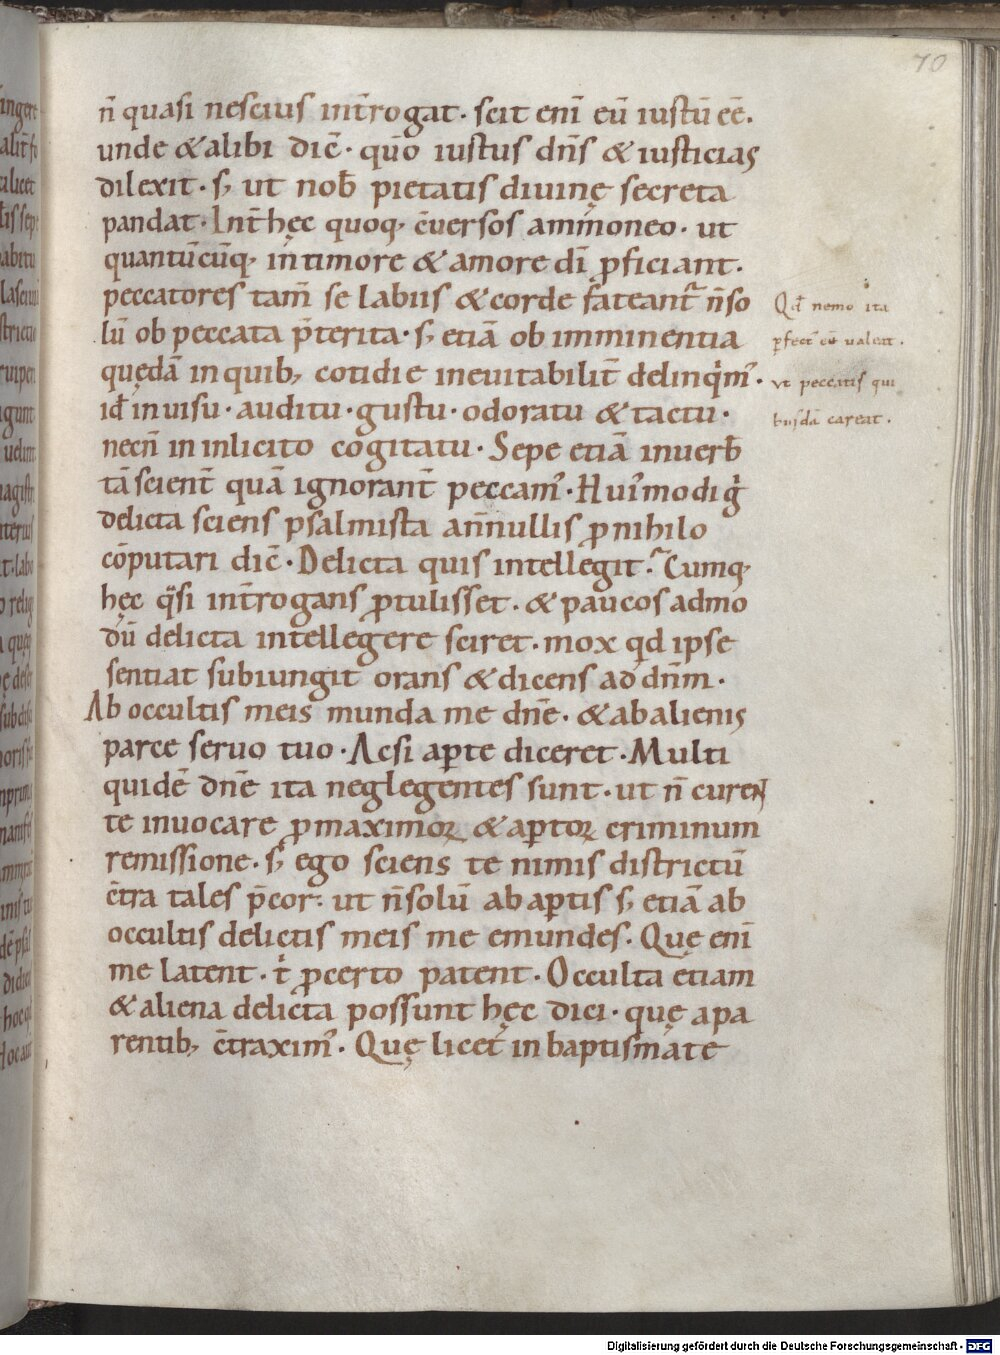 70
n̄ quasi nescius int̄rogat. scit enī eū iustū eē.
unde & alibi dic̄. quō iustus dn̄s & iusticias
dilexit. s; ut nob̄ pietatis diuinę secreta
pandat. Int̄ hęc quoq; c̄uersos ammoneo. ut
quantūcūq; in timore & amore dī ꝓficiant.
peccatores tam̄ se labiis & corde fateant᷑ n̄ so
lū ob peccata p̄terita. s; etiā ob imminentia
quędā in quib; cotidie ineuitabilit̄ delinq̇m᷒.
id᷒ in uisu. auditu. gustu. odoratu & tactu.
necn̄ in inlicito cogitatu. Sepe etiā in uerb̄
tā scient̄ quā ignorant̄ peccam᷒. Hui᷒modi g̊
delicta sciens psalmista a nn̄ullis ꝓ nihilo
cōputari dic̄. Delicta quis intellegit? Cumq;
hęc q̄si int̄rogans ꝓtulisset. & paucos admo
dū delicta intellegere sciret. mox qd ipse
sentiat subiungit orans & dicens ad dn̄m.
Ab occultis meis munda me dn̄e. & ab alienis
parce seruo tuo. Acsi aꝑte diceret. Multi
quidē dn̄e ita neglegentes sunt. ut n̄ curen
te inuocare ꝓ maximoꝝ & aꝑtoꝝ criminum
remissione. s; ego sciens te nimis districtū
c̄tra tales p̄cor. ut n̄ solū ab aꝑtis s; etiā ab
occultis delictis meis me emundes. Quę enī
me latent. t̊ ꝓcerto patent. Occulta etiam
& aliena delicta possunt hęc dici. quę a pa
rentib; c̄traxim᷒. Quę licet in baptismate
Qd̄ nemo ita
ꝑfect᷒ eē ualeat.
vt peccatis qui
busdā careat.
Digitalisierung gefördert durch die Deutsche Forschungsgemeinschaft - DFG